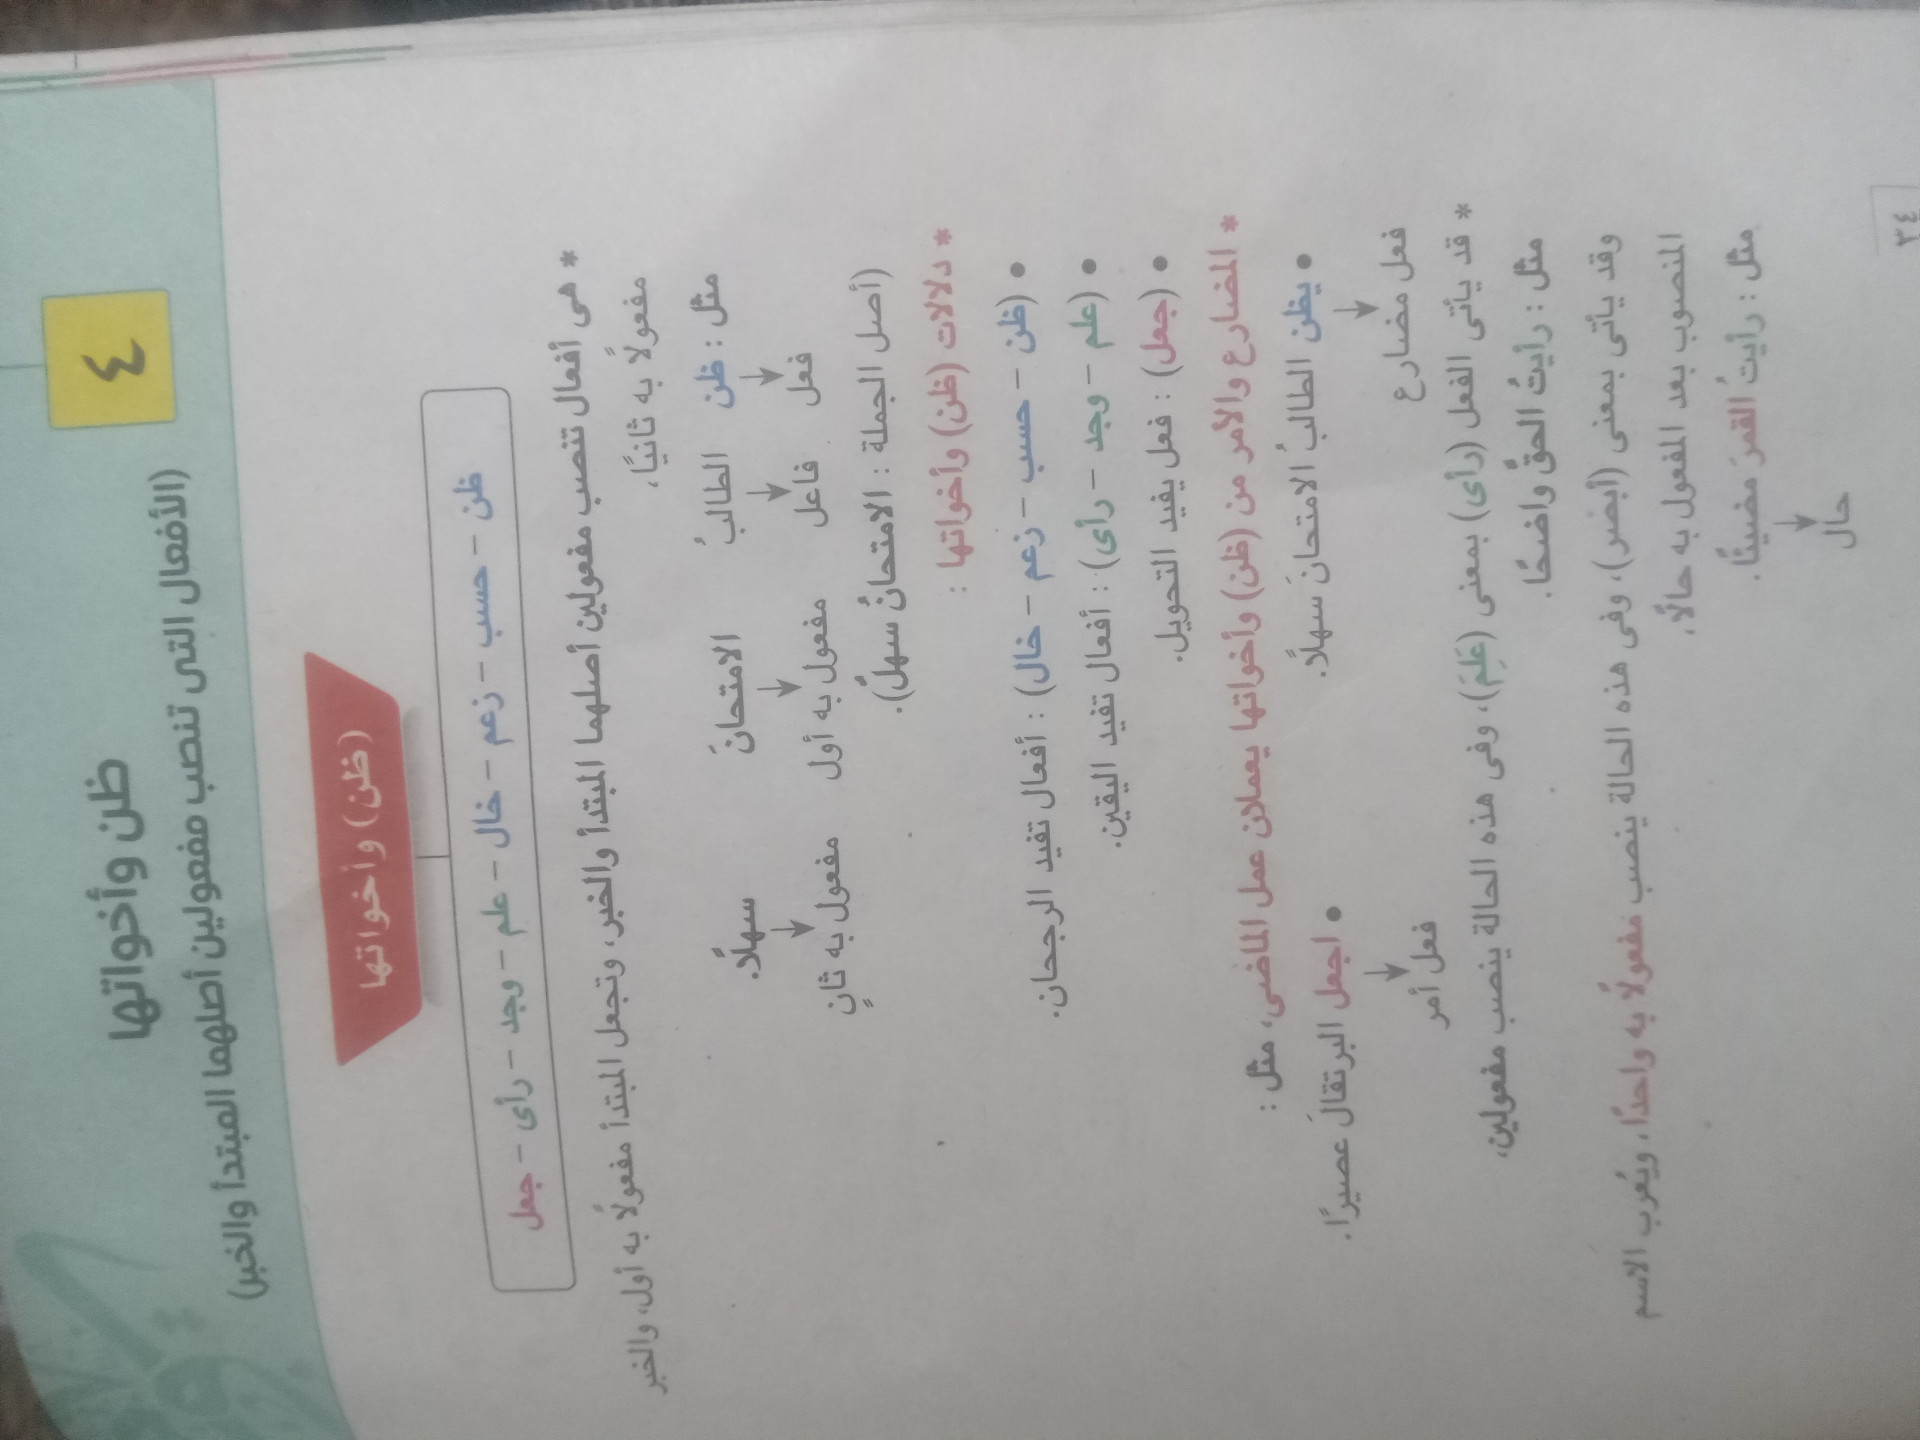 ٤
ظن وأخواتها
(الأفعال التى تنصب مفعولين أصلهما المبتدأ والخبر)
(ظن) وأخواتها
ظن - حسب - زعم - خال - علم - وجد - رأى - جعل
* هى أفعال تنصب مفعولين أصلهما المبتدأ والخبر، وتجعل المبتدأ مفعولًا به أول، والخبر
مفعولًا به ثانيًا،
مثل : ظن الطالبُ الامتحانَ سهلًا.
فعل فاعل مفعول به أول مفعول به ثانٍ
(أصل الجملة : الامتحانُ سهلٌ).
* دلالات (ظن) وأخواتها :
• (ظن - حسب - زعم - خال) : أفعال تفيد الرجحان.
• (علم - وجد - رأى) : أفعال تفيد اليقين.
• (جعل) : فعل يفيد التحويل.
* المضارع والأمر من (ظن) وأخواتها يعملان عمل الماضى، مثل :
• يظن الطالبُ الامتحانَ سهلًا. • اجعل البرتقالَ عصيرًا.
فعل مضارع فعل أمر
* قد يأتى الفعل (رأى) بمعنى (عَلِمَ)، وفى هذه الحالة ينصب مفعولين،
مثل : رأيتُ الحقَّ واضحًا.
وقد يأتى بمعنى (أبصر)، وفى هذه الحالة ينصب مفعولًا به واحدًا، ويُعرب الاسم
المنصوب بعد المفعول به حالًا،
مثل : رأيتُ القمرَ مضيئًا.
حال
٣٤